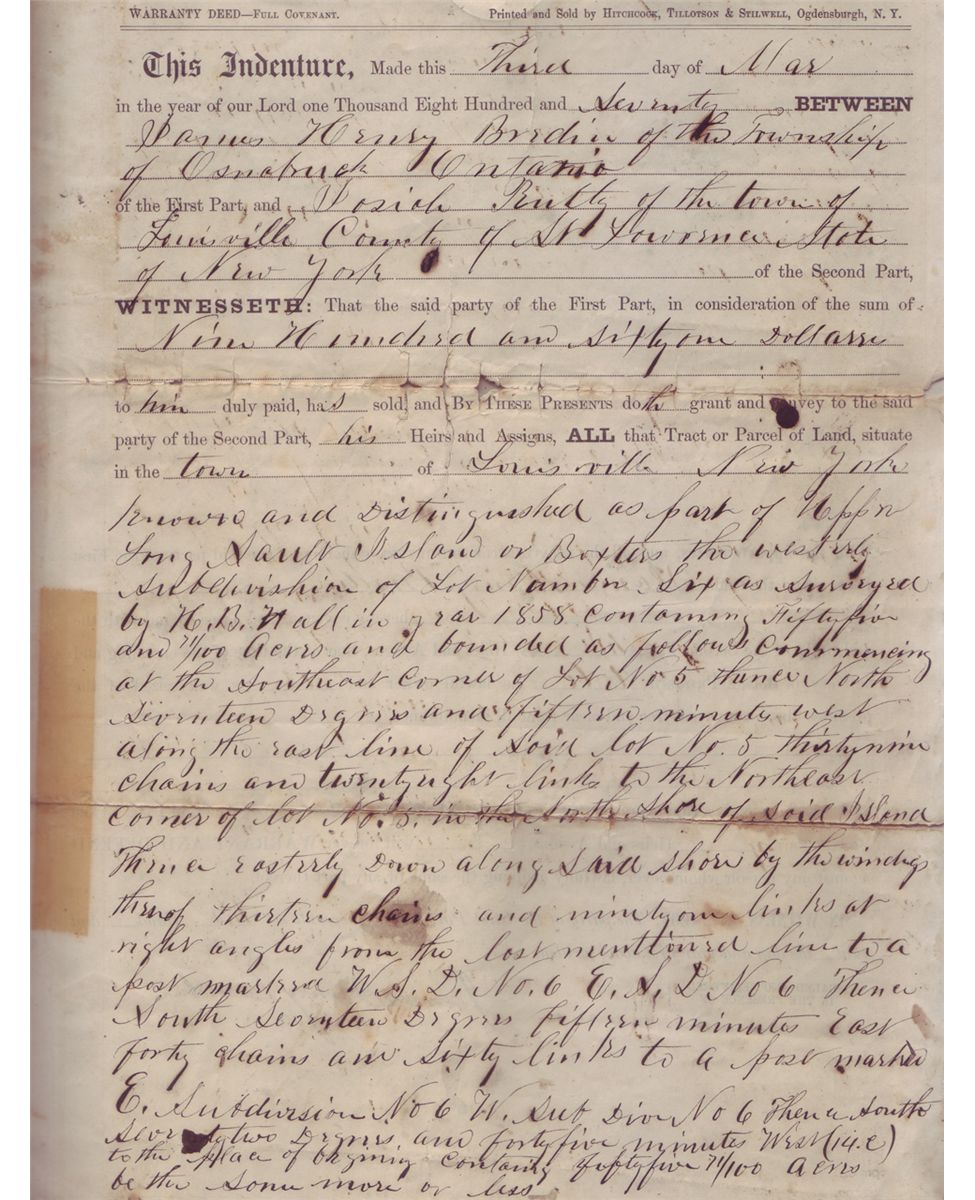 WARRANTY DEED—FULL COVENANT. Printed and Sold by HITCHCOCK, TILLOTSON & STILWELL, Ogdensburgh, N. Y.
This Indenture, Made this Third day of Mar
in the year of our Lord one Thousand Eight Hundred and Seventy BETWEEN
James Henry Bredin of the Township
of Osnabruck Ontario
of the First Part, and Josiah Rutty of the town of
Louisville County of St Lawrence State
of New York of the Second Part,
WITNESSETH: That the said party of the First Part, in consideration of the sum of
Nine Hundred and Sixtyone Dollars
to him duly paid, has sold, and BY THESE PRESENTS doth grant and convey to the said
party of the Second Part, his Heirs and Assigns, ALL that Tract or Parcel of Land, situate
in the town of Louisville New York
Known and Distinguished as part of Upper
Long Sault Island or Boxters the westerly
Subdivishion of Lot Number Six as Surveyed
by H. B. Hall in year 1858 Containing Fiftyfive
and 71/100 Acres and bounded as follows Commencing
at the Southeast Corner of Lot No 5 thence North
Seventeen Degrees and fifteen minutes west
along the east line of Said lot No. 5 thirtynine
chains and twentyeight links to the Northeast
corner of lot No. 5. in the North Shore of Said Island
Thence easterly Down along Said Shore by the windings
thereof thirteen chains and ninetyone links at
right angles from the last mentioned line to a
post marked W. S. D. No. 6 E. S. D No 6 Thence
South Seventeen Degrees Fifteen minutes East
forty chains and sixty links to a post marked
E. Subdivision No 6 W. Sub Divn No 6 Thence South
Seventytwo Degrees and fortyfive minutes West (14.c)
to the place of begining Containing fiftyfive 71/100 Acres
be the Same more or less